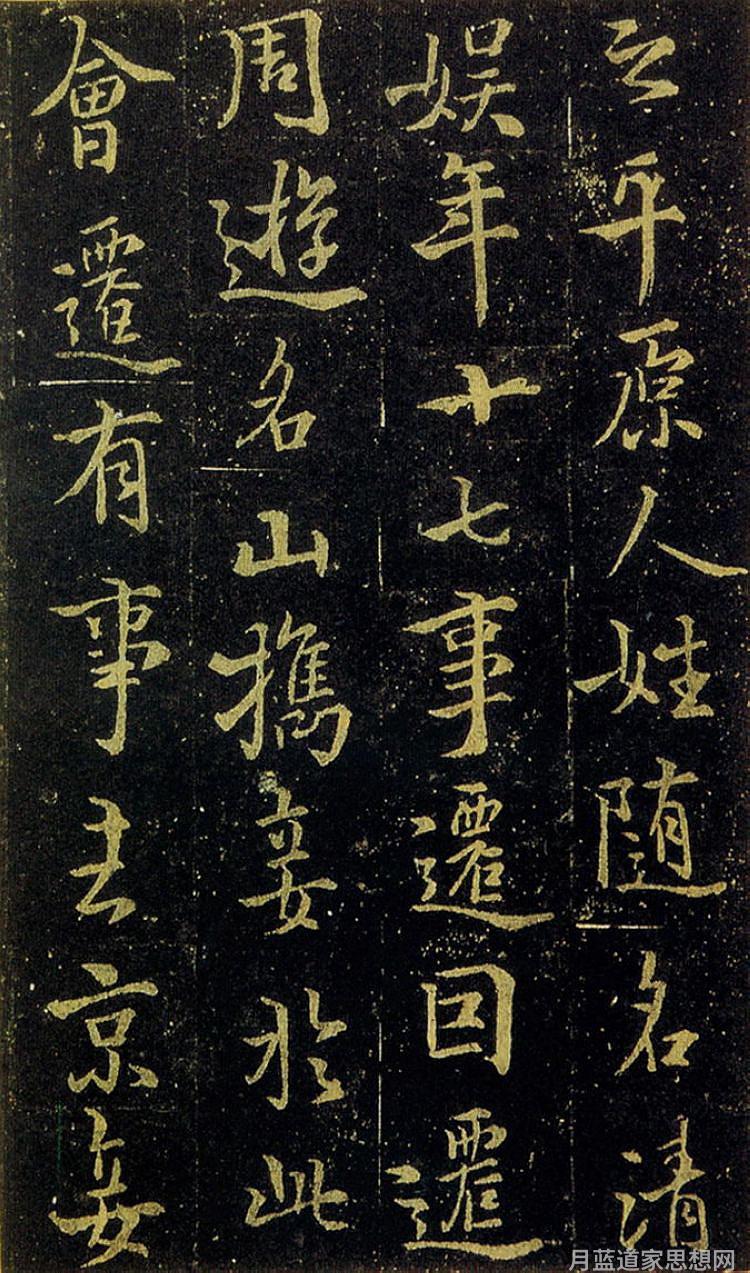 云平原人姓随名清
娱年十七事遷因遷
周遊名山攜妾於此
會遷有事去京妾
月蓝道家思想网